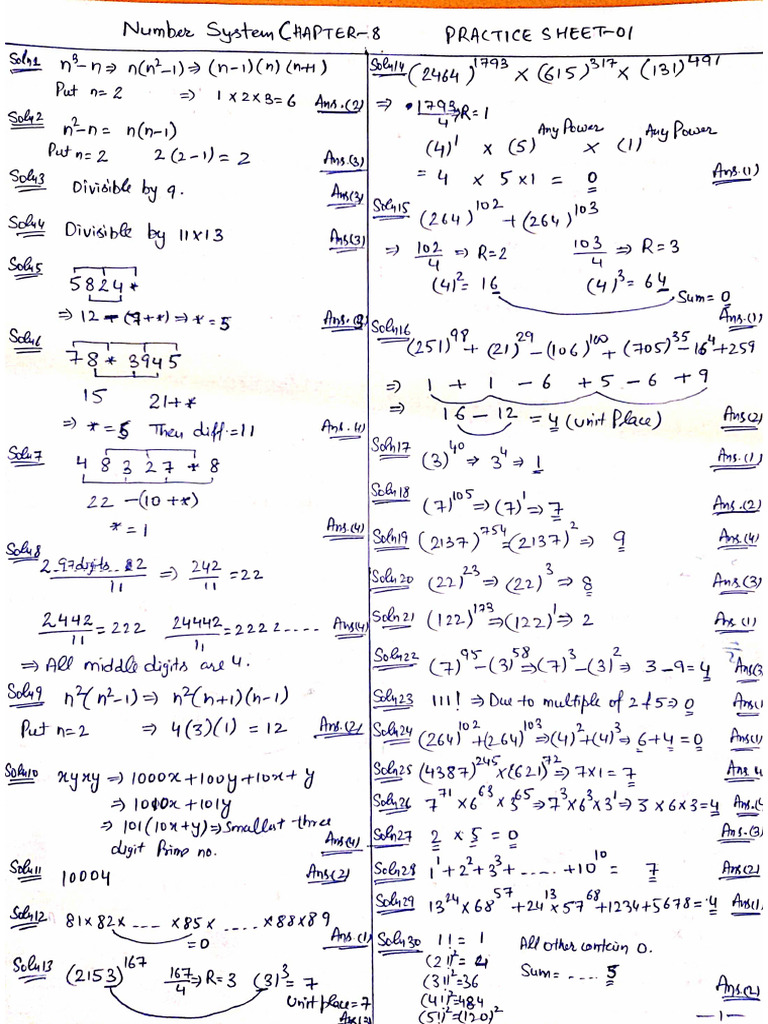 Number System CHAPTER-8 PRACTICE SHEET-01
Soln1 n³-n ⇒ n(n²-1) ⇒ (n-1)(n)(n+1)
Put n=2 ⇒ 1×2×3=6 Ans.(2)
Soln2 n²-n = n(n-1)
Put n=2 2(2-1)=2 Ans.(3)
Soln3 Divisible by 9. Ans(3)
Soln4 Divisible by 11×13 Ans(3)
Soln5
5824*
⇒ 12-(7+*) ⇒ *=5
Soln6
78*3945
15 21+*
⇒ *=5 Then diff.=11 Ans.(4)
Soln7
48327*8
22-(10+*)
*=1 Ans.(4)
Soln8
2 97digits 2/11 ⇒ 242/11 = 22
2442/11 = 222 24442/11 = 2222.... Ans(4)
⇒ All middle digits are 4.
Soln9 n²(n²-1) ⇒ n²(n+1)(n-1)
Put n=2 ⇒ 4(3)(1)=12 Ans.(2)
Soln10 xyxy ⇒ 1000x+100y+10x+y
⇒ 1010x+101y
⇒ 101(10x+y) ⇒ Smallest three
digit Prime no. Ans(4)
Soln11 10004 Ans(2)
Soln12 81×82×....×85×....×88×89
=0 Ans.(1)
Soln13 (2153)¹⁶⁷ 167/4 ⇒ R=3 (3)³=7
Unit place=7
Ans(3)
Soln14 (2464)¹⁷⁹³ × (615)³¹⁷ × (131)⁴⁹¹
⇒ 1793/4 ⇒ R=1
(4)¹ × (5)^Any Power × (1)^Any Power
= 4 × 5 × 1 = 0 Ans.(1)
Soln15 (264)¹⁰² + (264)¹⁰³
⇒ 102/4 ⇒ R=2 103/4 ⇒ R=3
(4)²=16 (4)³=64
Sum=0
Ans.(1)
Soln16
(251)⁹⁸ + (21)²⁹ - (106)¹⁰⁰ + (705)³⁵ - 16⁴ + 259
⇒ 1 + 1 - 6 + 5 - 6 + 9
⇒ 16-12 = 4 (unit Place) Ans(2)
Soln17 (3)⁴⁰ ⇒ 3⁴ ⇒ 1 Ans.(1)
Soln18 (7)¹⁰⁵ ⇒ (7)¹ ⇒ 7 Ans.(2)
Soln19 (2137)⁷⁵⁴ = (2137)² ⇒ 9 Ans.(4)
Soln20 (22)²³ ⇒ (22)³ ⇒ 8 Ans(3)
Soln21 (122)¹⁷³ ⇒ (122)¹ ⇒ 2 Ans.(1)
Soln22 (7)⁹⁵ - (3)⁵⁸ ⇒ (7)³ - (3)² ⇒ 3-9=4 Ans(3
Soln23 111! ⇒ Due to multiple of 2&5 ⇒ 0 Ans(1
Soln24 (264)¹⁰² + (264)¹⁰³ ⇒ (4)² + (4)³ ⇒ 6+4=0 Ans(1)
Soln25 (4387)²⁴⁵ × (621)⁷² ⇒ 7×1=7 Ans.4
Soln26 7⁷¹ × 6⁶³ × 3⁶⁵ ⇒ 7³×6³×3¹ ⇒ 3×6×3=4 Ans.(4
Soln27 2 × 5 = 0 Ans.(3)
Soln28 1¹+2²+3³+......+10¹⁰ = 7 Ans(2)
Soln29 13²⁴×68⁵⁷+24¹³×57⁶⁸+1234+5678=4 Ans(1)
Soln30 1!=1 All other contain 0.
(2!)²=4
(3!)²=36 Sum=....5
(4!)²=484 Ans.(2)
(5!)²=(120)² -1-